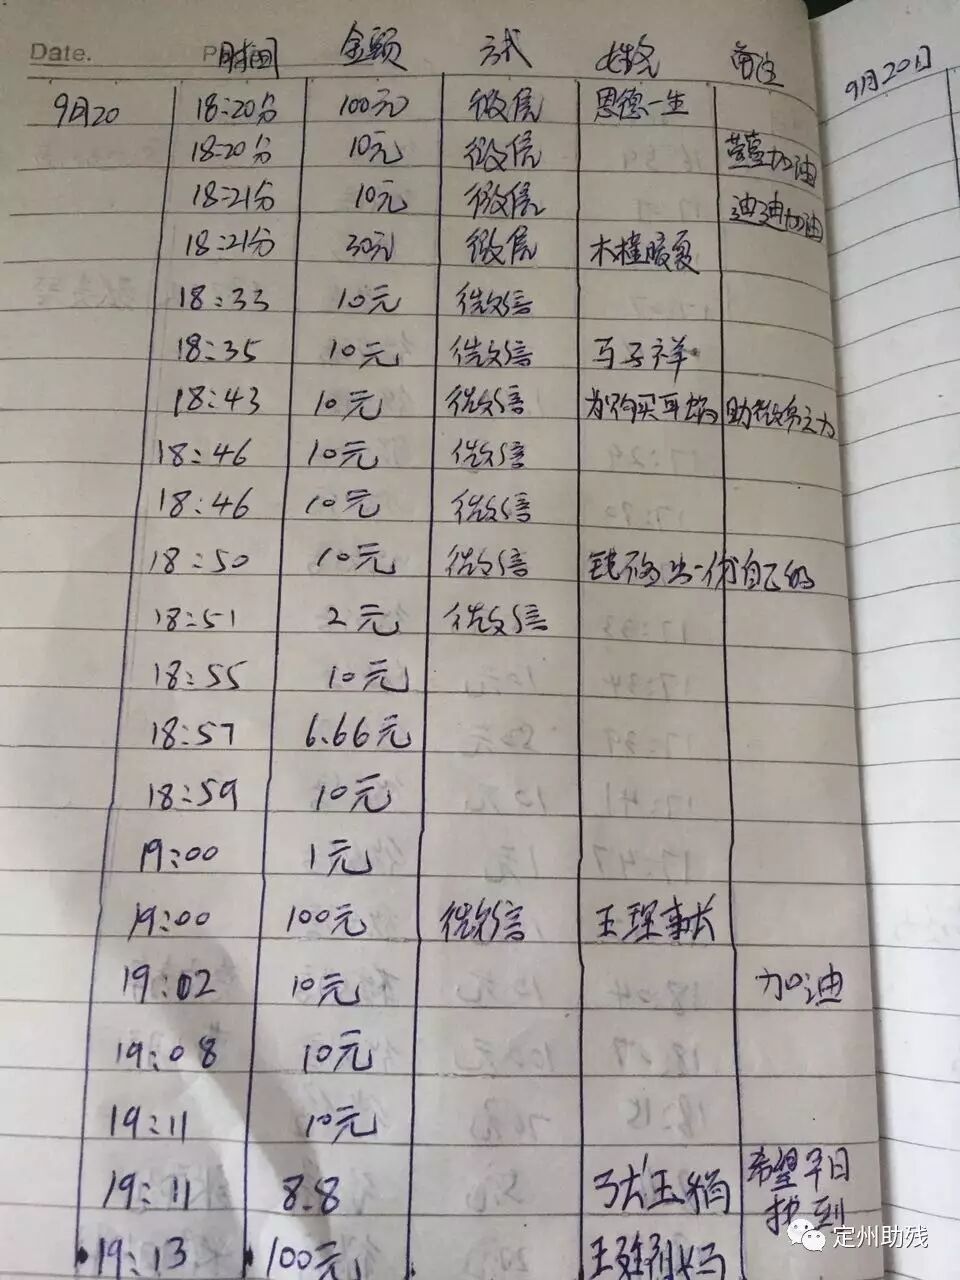 Date. 时间 金额 方式 姓名 备注
9月20日
9月20 18:20分 100元 微信 恩德一生
18:20分 10元 微信 加油
18:21分 10元 微信 迪迪加油
18:21分 30元 微信 木槿暖夏
18:33 10元 微信
18:35 10元 微信 马子祥
18:43 10元 微信 为购买耳蜗 助微弱之力
18:46 10元 微信
18:46 10元 微信
18:50 10元 微信 自己的
18:51 2元 微信
18:55 10元
18:57 6.66元
18:59 10元
19:00 1元
19:00 100元 微信 王理事长
19:02 10元 加油
19:08 10元
19:11 10元
19:11 8.8 张玉娟 希望早日
找到
19:13 100元 妈
定州助残